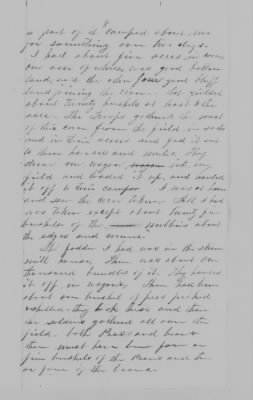 8
a part of it camped about me
for something over two days.
I had about five acres in corn,
one acre of which was good bottom
land, and the other four good bluff
land joining the corn. It yielded
about twenty bushels at least
acre. The troops gathered the most
of this corn from the field, in sacks
and in their arms and fed it out
to their horses and mules. They
drove one wagon into my
field and loaded it up, and hauled
it off to their camps. I was at home
and saw the corn taken. All I had
was taken except about twenty five
bushels of the nubbins about
the edges and corners.
The fodder I had was in the
house, there was about one
thousand bundles of it. They hauled
it off in wagons. There had been
about one bushel of peas picked
they took this and then
the soldiers gathered all over the
field, both Peas and beans
there must have been four or
five bushels of the Peas and
or four of the beans.